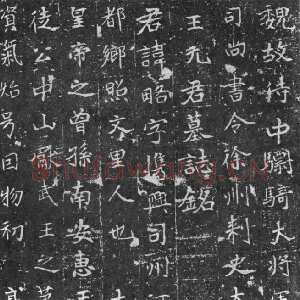 魏故侍中驃騎大將軍
司尚書令徐州刺史太
王元君墓誌銘
君諱略字儁興司州河
都鄉照文里人也
皇帝之曾孫南安惠王
從公中山獻武王之第
資氣始号曰物初
shufawang.CN